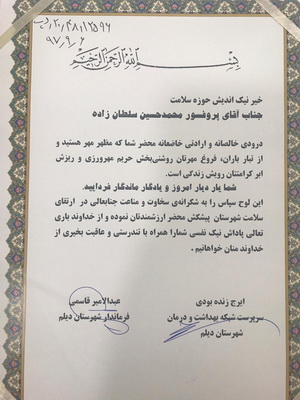 ۲۰/۴۸/۱۲۵۹۶/د
۹۷/۹/۶
بسم الله الرحمن الرحیم
خیر نیک اندیش حوزه سلامت
جناب آقای پروفسور محمدحسین سلطان زاده
درودی خالصانه و ارادتی خاضعانه محضر شما که مظهر مهر هستید و
از تبار باران، فروغ مهرتان روشنی‌بخش حریم مهرورزی و ریزش
ابر کرامتتان رویش زندگی است.
شما یار دیار امروز و یادگار ماندگار فردایید.
این لوح سپاس را به شکرانه‌ی سخاوت و مناعت جنابعالی در ارتقای
سلامت شهرستان پیشکش محضر ارزشمندتان نموده و از خداوند باری
تعالی پاداش نیک نفسی شما را همراه با تندرستی و عاقبت بخیری از
خداوند منان خواهانیم.
ایرج زنده بودی
سرپرست شبکه بهداشت و درمان
شهرستان دیلم
عبدالامیر قاسمی
فرماندار شهرستان دیلم